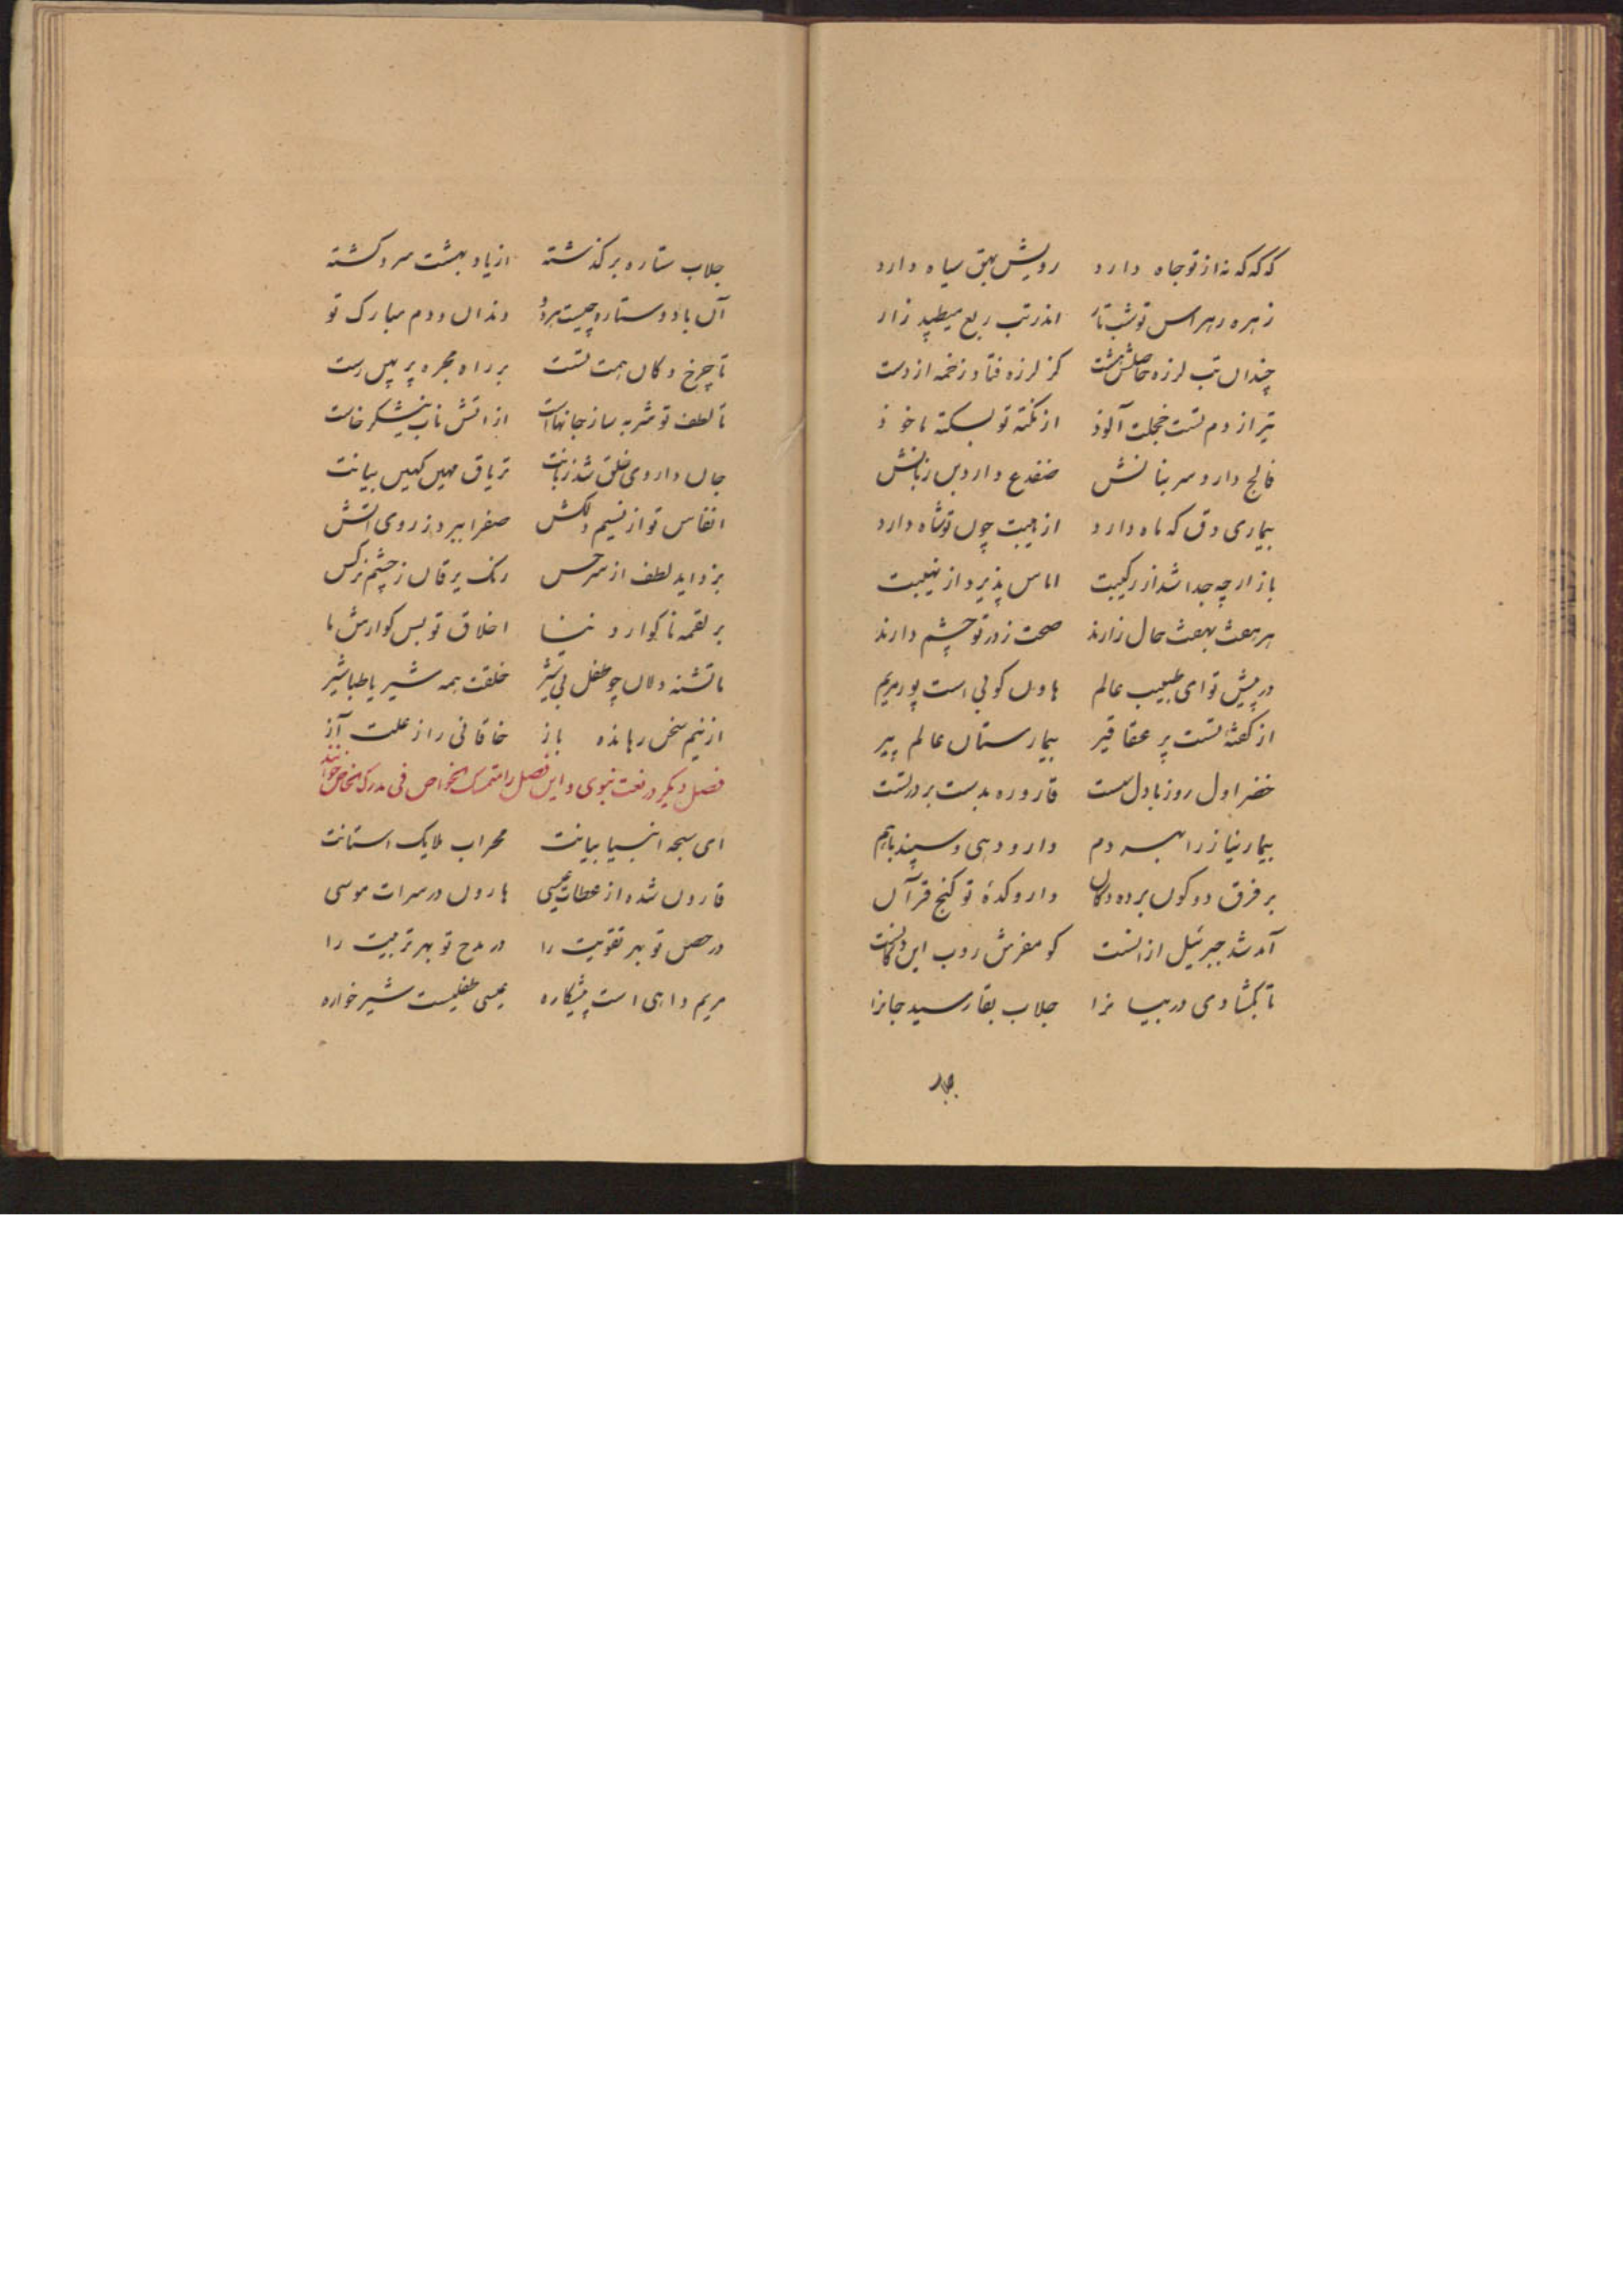 که که که نه از تو جاه دارد رویش بهق سیاه دارد
زهره ز هراس تو شب تار اندر تب ربع میطپد زار
چندان تب لرزه حاصلش هست کز لرزه فتاد زخمه از دست
تیر از دم تست خجلت آلوذ از نکته تو بسکته ماخوذ
فالج دارد سر بنانش ضفدع دارد بن زبانش
بیماری دق که ماه دارد از هیبت چون تو شاه دارد
باز ارچه جدا شد از رکیبت اماس پذیرد از نهیبت
هر هفت بهفت حال زارند صحت ز در تو چشم دارند
در پیش تو ای طبیب عالم هاون کوبی است پور مریم
از کفته تست پر عقاقیر بیمارستان عالم پیر
خضر اول روز با دل سست قاروره بدست بر در تست
بیمار نیاز را بهر دم دارو دهی و سپند باهم
بر فرق دو کون برده دکان داروکده تو کنج قرآن
آمد شد جبرئیل از انست کو مفرش روب این دکانست
تا بکشادی در بیانرا جلاب بقا رسید جانرا
جلاب ستاره بر کذشته از یاد بهشت سرد کشته
آن باد و ستاره چیست هر دو دندان و دم مبارک تو
تا چرخ دکان همت تست بر راه مجره پر پس رست
تا لطف تو شربه ساز جانهاست از اتش ناب نیشکر خاست
جان داروی خلق شد زبانت تریاق مهین کهین بیانت
انفاس تو از نسیم دلکش صفرا ببرد ز روی اتش
بزداید لطف از سر حس رنک یرقان ز چشم نرکس
بر لقمه ناکوار دنیا اخلاق تو بس کوارش ما
ما تشنه دلان چو طفل بی شیر خلقت همه شیر با طباشیر
از نیم سخن رهانده باز خاقانی را ز علت آز
فصل دیکر در نعت نبوی و این فصل را ملتمس الخواص فی مدرک الخاص خوانند
ای سبحه انبیا بیانت محراب ملایک استانت
قارون شده از عطات عیسی هارون در سرات موسی
در حصن تو بهر تقویت را در مدح تو بهر تربیت را
مریم داهی است پیشکاره عیسی طفلیست شیر خواره